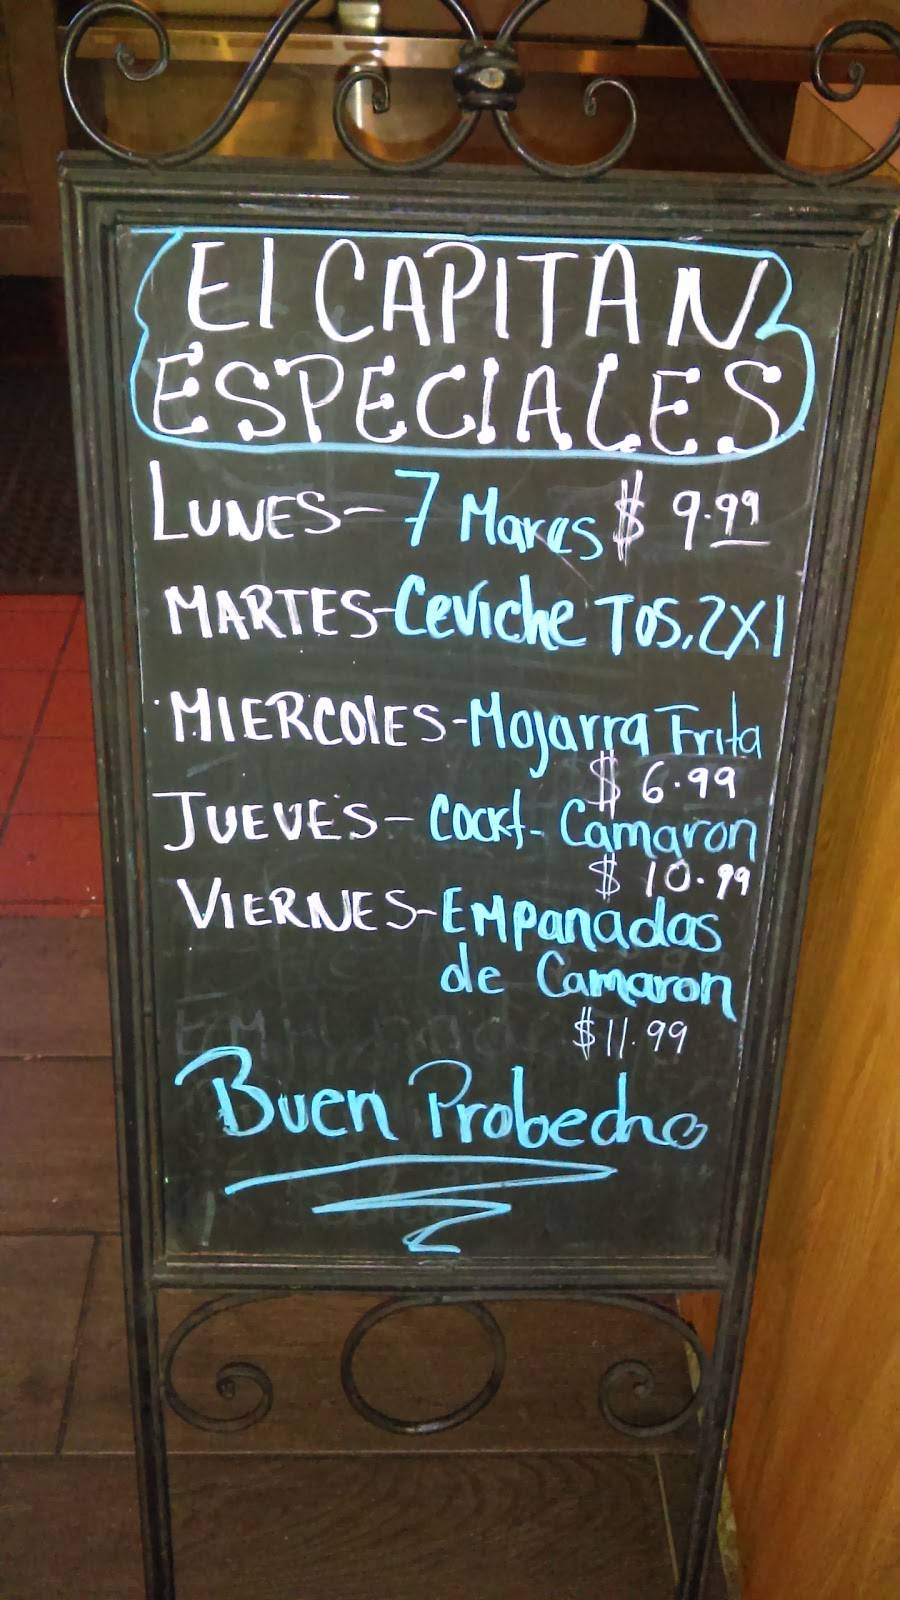 El CAPITAN
ESPECIALES
LUNES - 7 Mares $ 9.99
MARTES - Ceviche TOS. 2X1
MIERCOlES - Mojarra Frita
$ 6.99
JUEVES - Cockt - Camaron
$ 10.99
VIERNES - EMPanadas
de Camaron
$ 11.99
Buen Probecho